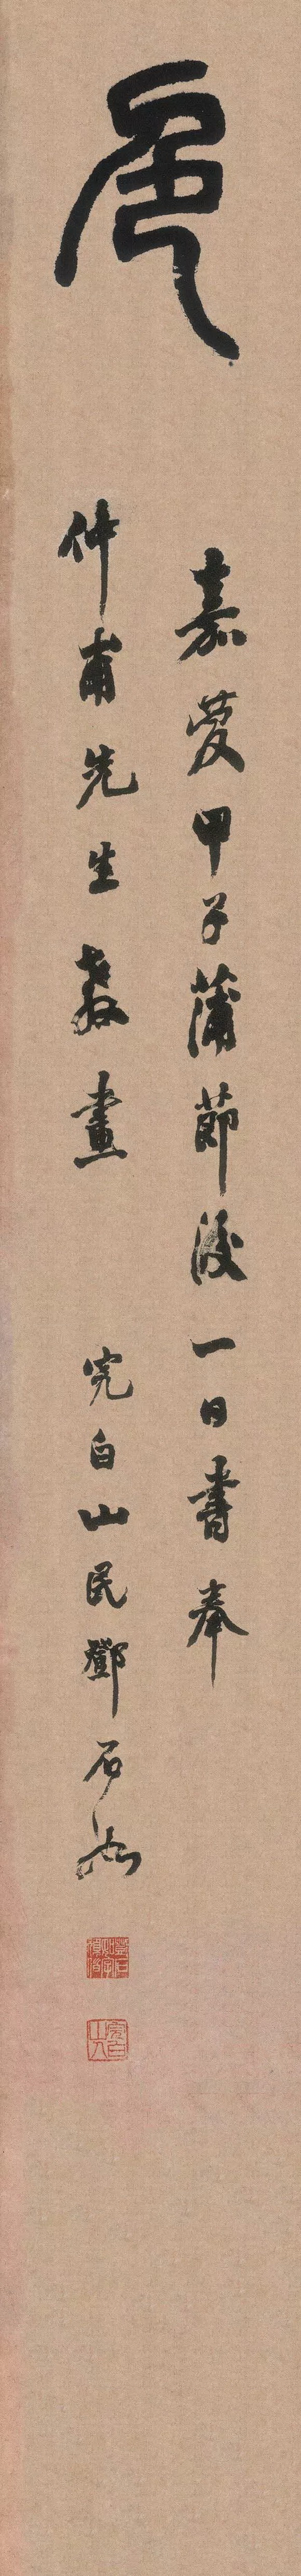 色
嘉慶甲子蒲節後一日書奉
仲甫先生教畫 完白山民鄧石如
鄧石如字頑伯
完白山人